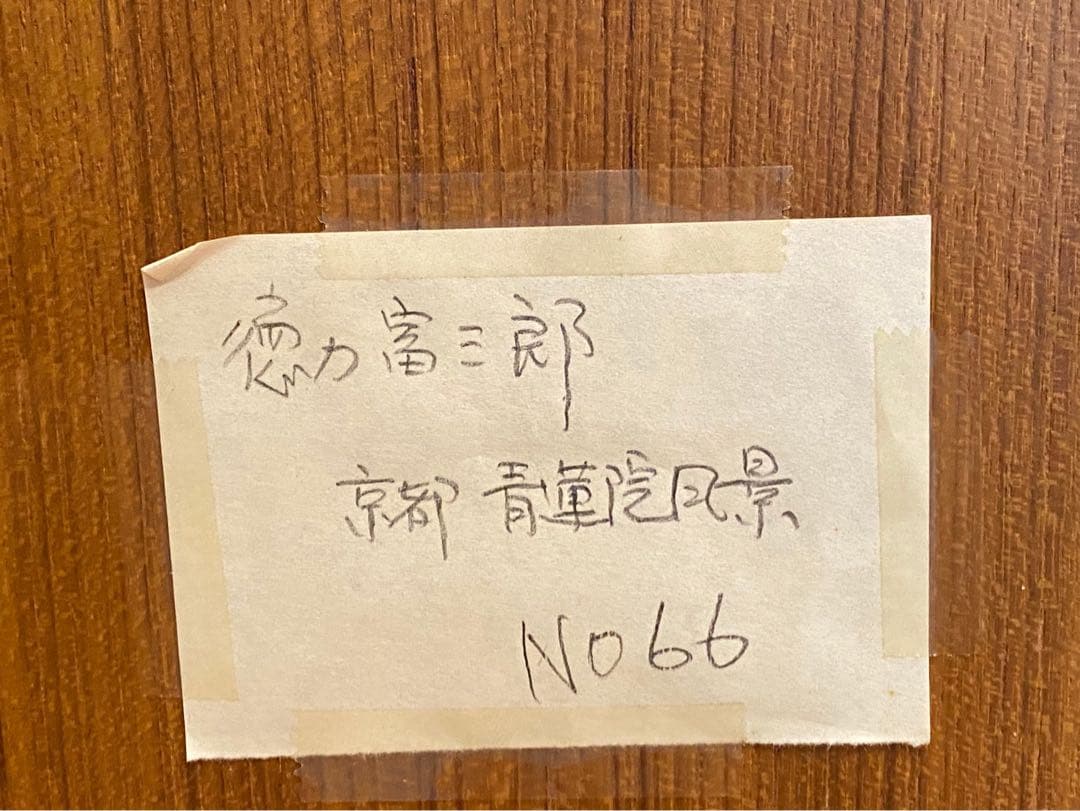 徳力富三郎
京都 青蓮院風景
NO66